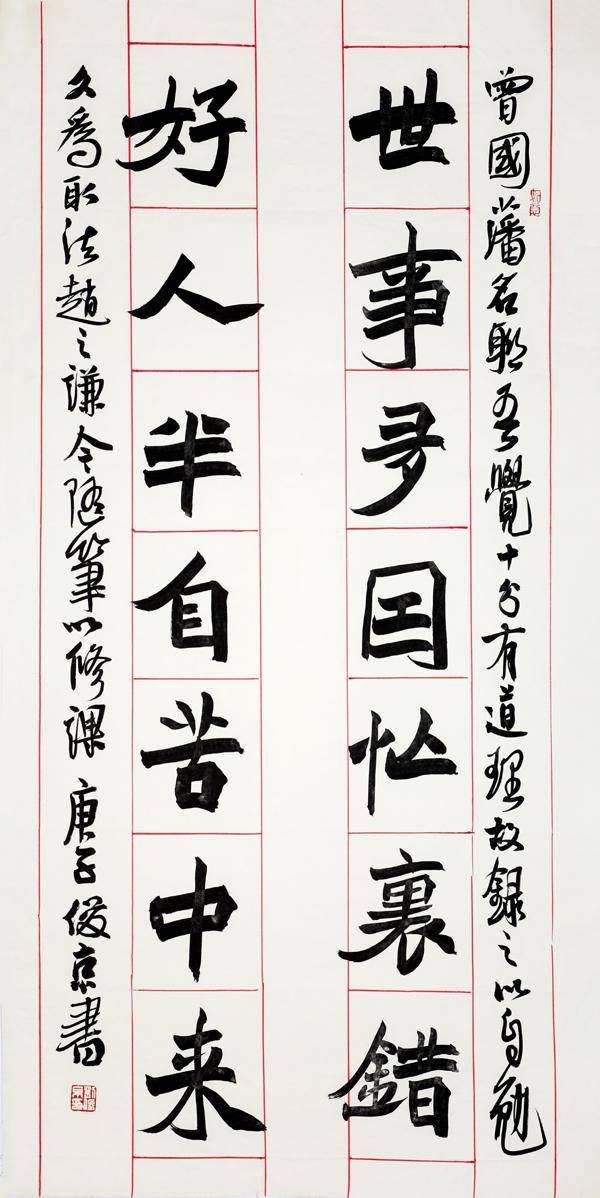 曾國藩名聯吾覺十分有道理故録之以自勉
世事多因忙裏錯
好人半自苦中来
為取法趙之謙今隨筆以修課庚子俊京書